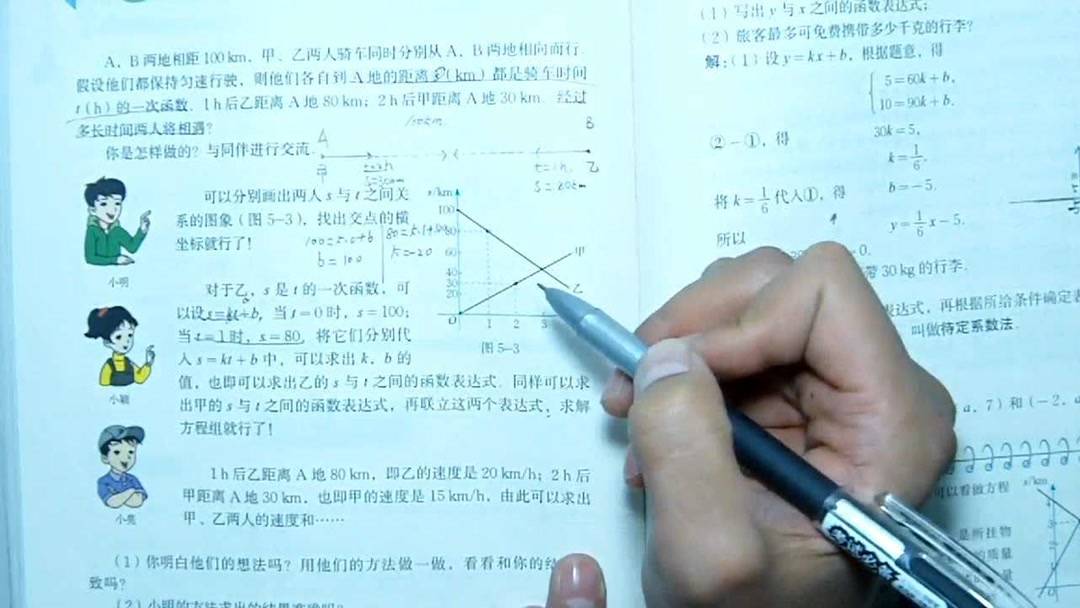 A，B两地相距100 km，甲、乙两人骑车同时分别从A，B两地相向而行.
假设他们都保持匀速行驶，则他们各自到A地的距离s(km)都是骑车时间
t(h)的一次函数. 1 h后乙距离A地80 km；2 h后甲距离A地30 km. 经过
多长时间两人将相遇？
100km
A
B
你是怎样做的？与同伴进行交流.
甲
乙
t=2h
s=30km
t=1h
s=80km
可以分别画出两人s与t之间关
系的图象（图5-3），找出交点的横
坐标就行了！
小明
b=100
k=-20
s/km
100
80
60
40
30
20
O
1
2
3
甲
乙
图5-3
对于乙，s是t的一次函数，可
以设s=kt+b. 当t=0时，s=100；
当t=1时，s=80. 将它们分别代
入s=kt+b中，可以求出k，b的
值，也即可以求出乙的s与t之间的函数表达式. 同样可以求
出甲的s与t之间的函数表达式，再联立这两个表达式，求解
方程组就行了！
小颖
1 h后乙距离A地80 km，即乙的速度是20 km/h；2 h后
甲距离A地30 km，也即甲的速度是15 km/h，由此可以求出
甲、乙两人的速度和……
小亮
（1）你明白他们的想法吗？用他们的方法做一做，看看和你的结
致吗？
（1）写出y与x之间的函数表达式；
（2）旅客最多可免费携带多少千克的行李？
解：（1）设y=kx+b，根据题意，得
5=60k+b,
10=90k+b.
②-①，得
30k=5,
k=1/6.
将k=1/6代入①，得
b=-5.
y=1/6x-5.
所以
30 kg的行李.
表达式，再根据所给条件确定表
叫做待定系数法.
a，7）和（-2，a
可以看做方程
s/km
是所挂物
的质量
量
O
考试必备